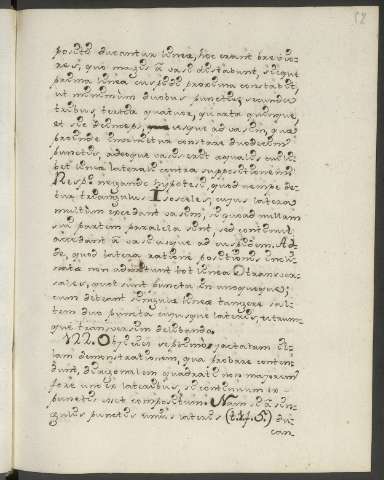 52
posito ducantur lineæ, hoc erunt brevio-
res, quo magis à basi distabunt, sicque
prima linea cuspidi proxima constabit,
ut minimum duobus punctis, secunda
tribus, tertia quatuor, quarta quinque,
et sic deinceps, usque ad basim, quæ
proinde linea constare duodecim
punctis, adeoque basis erit æqualis cuili-
bet lineæ laterali contra suppositionem.
Resp. negando hypotesi, quod nempe de-
tur triangulus Isosceles, cujus latera
multum excedant basim, si quoad nullam
sui partem parallela sint, sed continuè
accedant à basi usque ad cuspidem. Ad-
de, quod latera ratione positionis incli-
natæ non admittunt tot lineas transver-
sales, quot sunt puncta in unoquoque;
cum debeant singulæ lineæ tangere sal-
tem duo puncta cujusque lateris, utrum-
que transversim delibando.
122. Objicies septimò jactatam il-
lam demonstrationem, qua probare conten-
dunt, diagonalem quadrati non majorem
fore uno ex lateribus, si continuum ex
punctis esset compositum. Nam si à sin-
gulis punctis unius lateris (t. 4. 5.) du-
can-